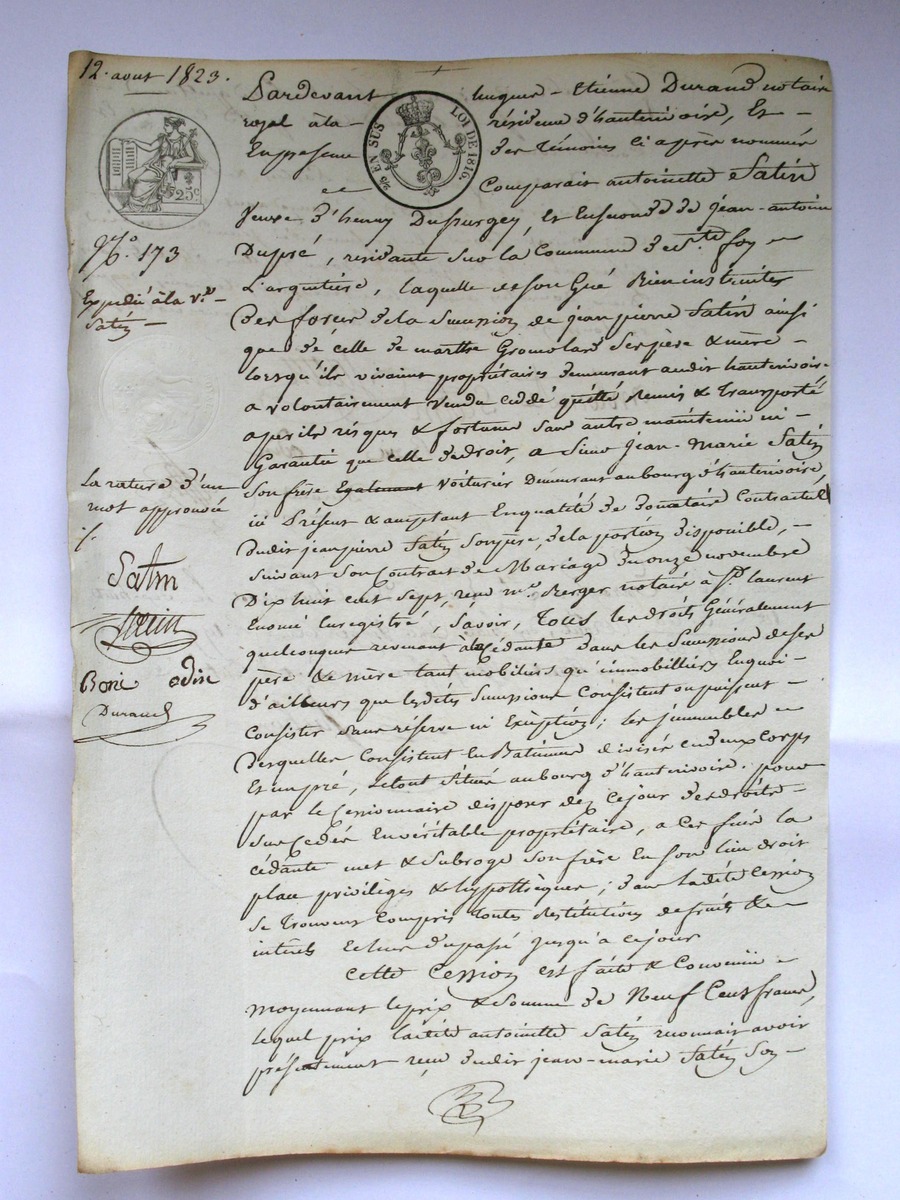 12. aout 1823.
Pardevant lucques - Etienne Durand notaire
royal à la - résidence d'hauterivoire, Et -
En présence des témoins ci après nommés
Comparait antoinette Satin
25c
EN SUS
LOI DE 1816.
Veuve d'henry Dussurgey, et En secondes de jean-antoine
Dupré, résidante sur la Commune de Ste foy
L'argentière, laquelle de son Gré Bien instruites
Des forces de la succession de jean pierre Satin ainsi
que de celle de marthe Gromolard Ses père & mère -
lorsqu'ils vivaient propriétaires demeurant audit hauterivoire
a volontairement vendu cédé quitté Remis & transporté
a perils risques & fortunes sans autre maintenüe ni -
Garantie que celle de droit, a Sieur Jean-Marie Satin
Son frère Egalement Voiturier Demeurant au bourg d'hauterivoire,
ici Présent & acceptant En qualité de donataire Contractuel
dudit jean pierre Satin Son père, de la portion disponible, -
suivant Son Contrat de Mariage du onze novembre
Dix huit cent Sept, reçu me. Berger notaire à St. laurent
Enomé Enregistré, Savoir, Tous les droits Généralement
quelconques revenant à la Cédante dans les Successions de ses
père & mère tant mobiliers qu'immobilliers En quoi -
d'ailleurs que les dites Successions Consistent ou puissent -
Consister sans réserve ni Exception; les jmmeubles
Desquelles Consistent En Batimens divisés en deux corps
Et un pré, le tout Situé au bourg d'hauterivoire. pour
par le Cessionnaire disposer dez Ce jour des droits -
Sus Cédés En véritable propriétaire, a Ces fins la
cédante met & Subroge Son frère En Son lieu droit
place privilèges & hypothèques; dans ladite Cession
Se trouvent Compris toutes Restitutions de fruits &
interets Echus du passé jusqu'a ce jour
Cette Cession est faite & Convenüe
Moyennant le prix & Somme de Neuf Cent francs,
lequel prix ladite antoinette Satin reconnait avoir
présentement reçu dudit jean-marie Satin Son -
No. 173
Expedié à la ve. -
Satin -
La rature d'un
mot approuvée
Satin
Boni odin
Durand